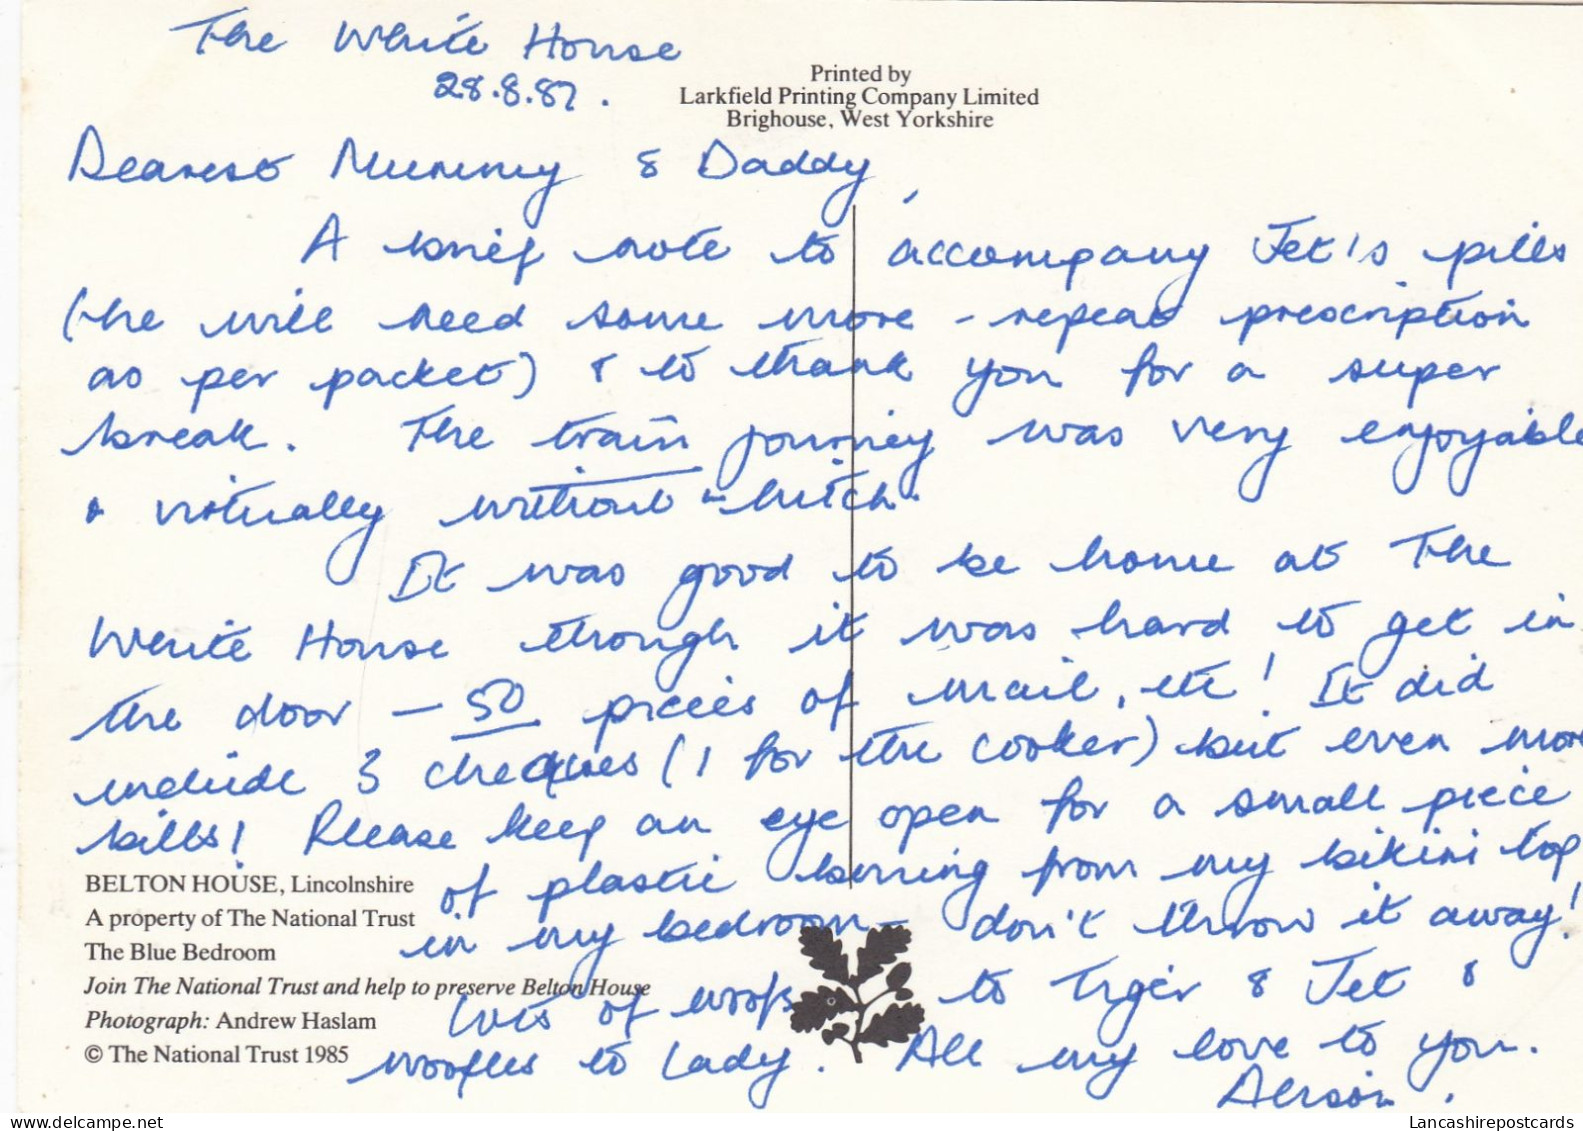 The White House
28.8.87.
Printed by
Larkfield Printing Company Limited
Brighouse, West Yorkshire
Dearest Mummy & Daddy,
A brief note to accompany Jet's pills
(he will need some more - repeat prescription
as per packet) & to thank you for a super
break. The train journey was very enjoyable
& virtually without a hitch.
It was good to be home at The
White House though it was hard to get in
the door - 50 pieces of mail, etc! It did
include 3 cheques (1 for the cooker) but even more
bills! Please keep an eye open for a small piece
of plastic boning from my bikini top
in my bedroom - don't throw it away!
Lots of woofs to Tiger & Jet &
woofles to Lady. All my love to you.
Alison.
BELTON HOUSE, Lincolnshire
A property of The National Trust
The Blue Bedroom
Join The National Trust and help to preserve Belton House
Photograph: Andrew Haslam
© The National Trust 1985
Lancashirepostcards